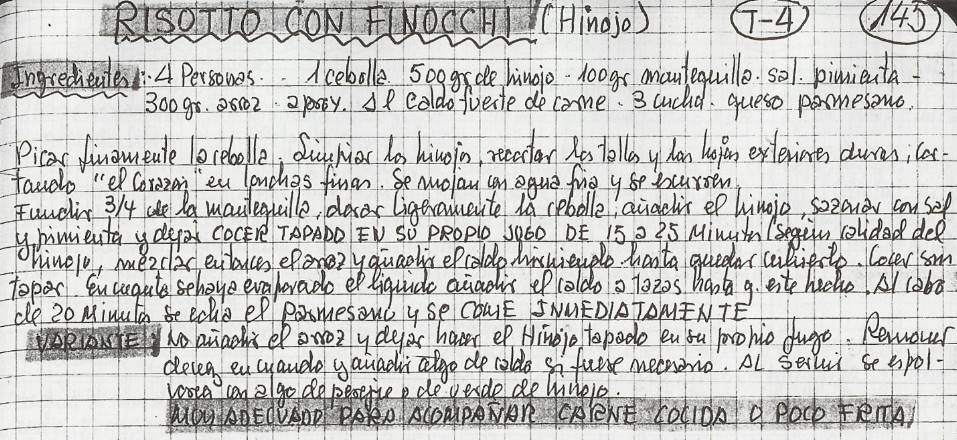 RISOTTO CON FINOCCHI (Hinojo) T-4 145
Ingredientes: 4 Personas. - 1 cebolla. 500 grs de hinojo - 100 gr mantequilla. sal. pimienta -
300 gr. arroz. 1 l caldo fuerte de carne. 3 cucha. queso parmesano.
Picar finamente la cebolla. Limpiar los hinojos, recortar los tallos y las hojas exteriores duras, cor-
tando "el corazon" en lonchas finas. Se mojan con agua fria y se escurren.
Fundir 3/4 de la mantequilla, dorar ligeramente la cebolla, añadir el hinojo, sazonar con sal
y pimienta y dejar COCER TAPADO EN SU PROPIO JUGO DE 15 a 25 Minutos (segun calidad del
hinojo, mezclar entonces el arroz y añadir el caldo hirviendo hasta quedar cubierto. Cocer sin
tapar. En cuanto se haya evaporado el liquido añadir el caldo a tazas hasta q. este hecho. Al cabo
de 20 Minutos se echa el Parmesano y se COME INMEDIATAMENTE
VARIANTE: No añadir el arroz y dejar hacer el Hinojo tapado en su propio jugo. Remover
de vez en cuando y añadir algo de caldo si fuese necesario. AL servir se espol-
vorea con algo de perejil o de verde de hinojo.
MUY ADECUADO PARA ACOMPAÑAR CARNE COCIDA O POCO FRITA